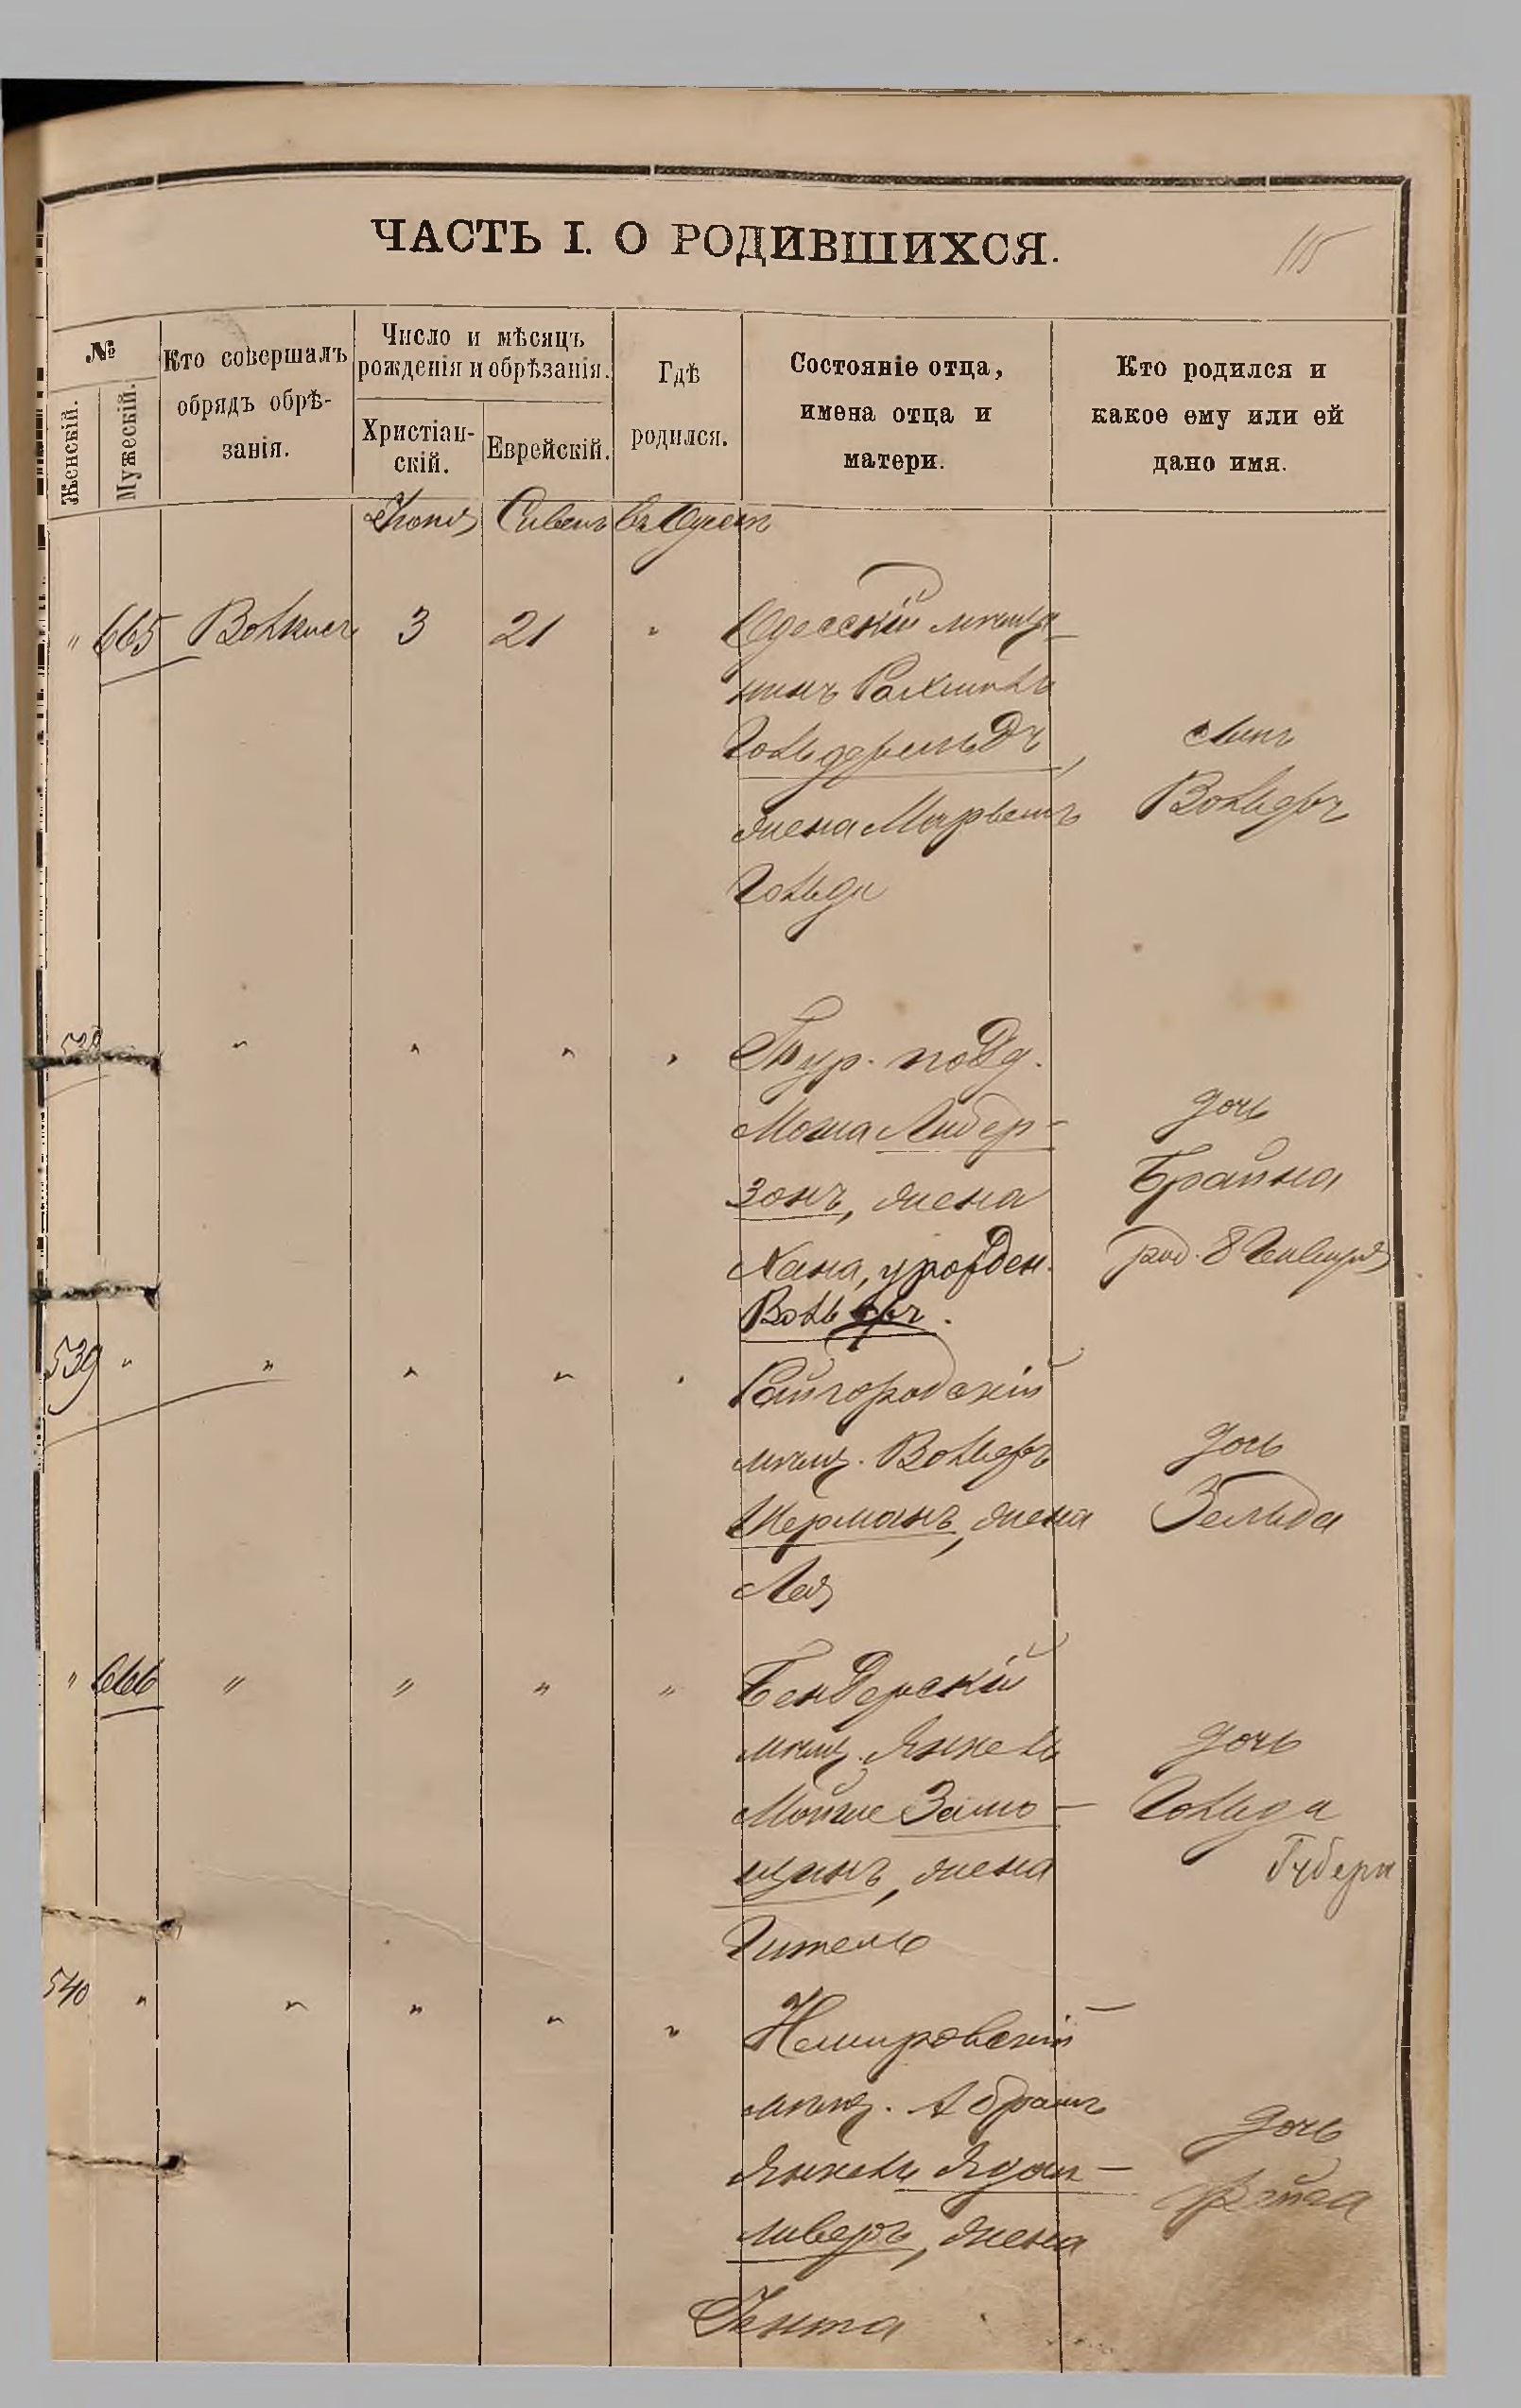 ЧАСТЬ I. О РОДИВШИХСЯ.
115
№
Женскій.
Мужескій.
Кто совершалъ
обрядъ обрѣ-
занія.
Число и мѣсяцъ
рожденія и обрѣзанія.
Христіан-
скій.
Еврейскій.
Гдѣ
родился.
Состояніе отца,
имена отца и
матери.
Кто родился и
какое ему или ей
дано имя.
Іюня Сивань въ Одессѣ
" 665 3 21 "
Одесскій мѣща-
нинъ Рахмиль
жена Марьемъ
Гольда
Сынъ
Вольфъ
538 " " " "
Тур. подд.
Моша Либер-
зонъ, жена
Хана, урожден.
Вольфъ.
дочь
Брайна
род. 8 Генваря
539 " " " " "
Райгородскій
мѣщ. Вольфъ
Шерманъ, жена
Лея
дочь
Зельда
" 666 " " " "
Бендерскій
мѣщ. Янкель
Мойше Замо-
щинъ, жена
Гитель
дочь
Гольда
540 " " " " "
Немировскій
мѣщ. Абрамъ
Янкель
жена
Гента
дочь
Рейза